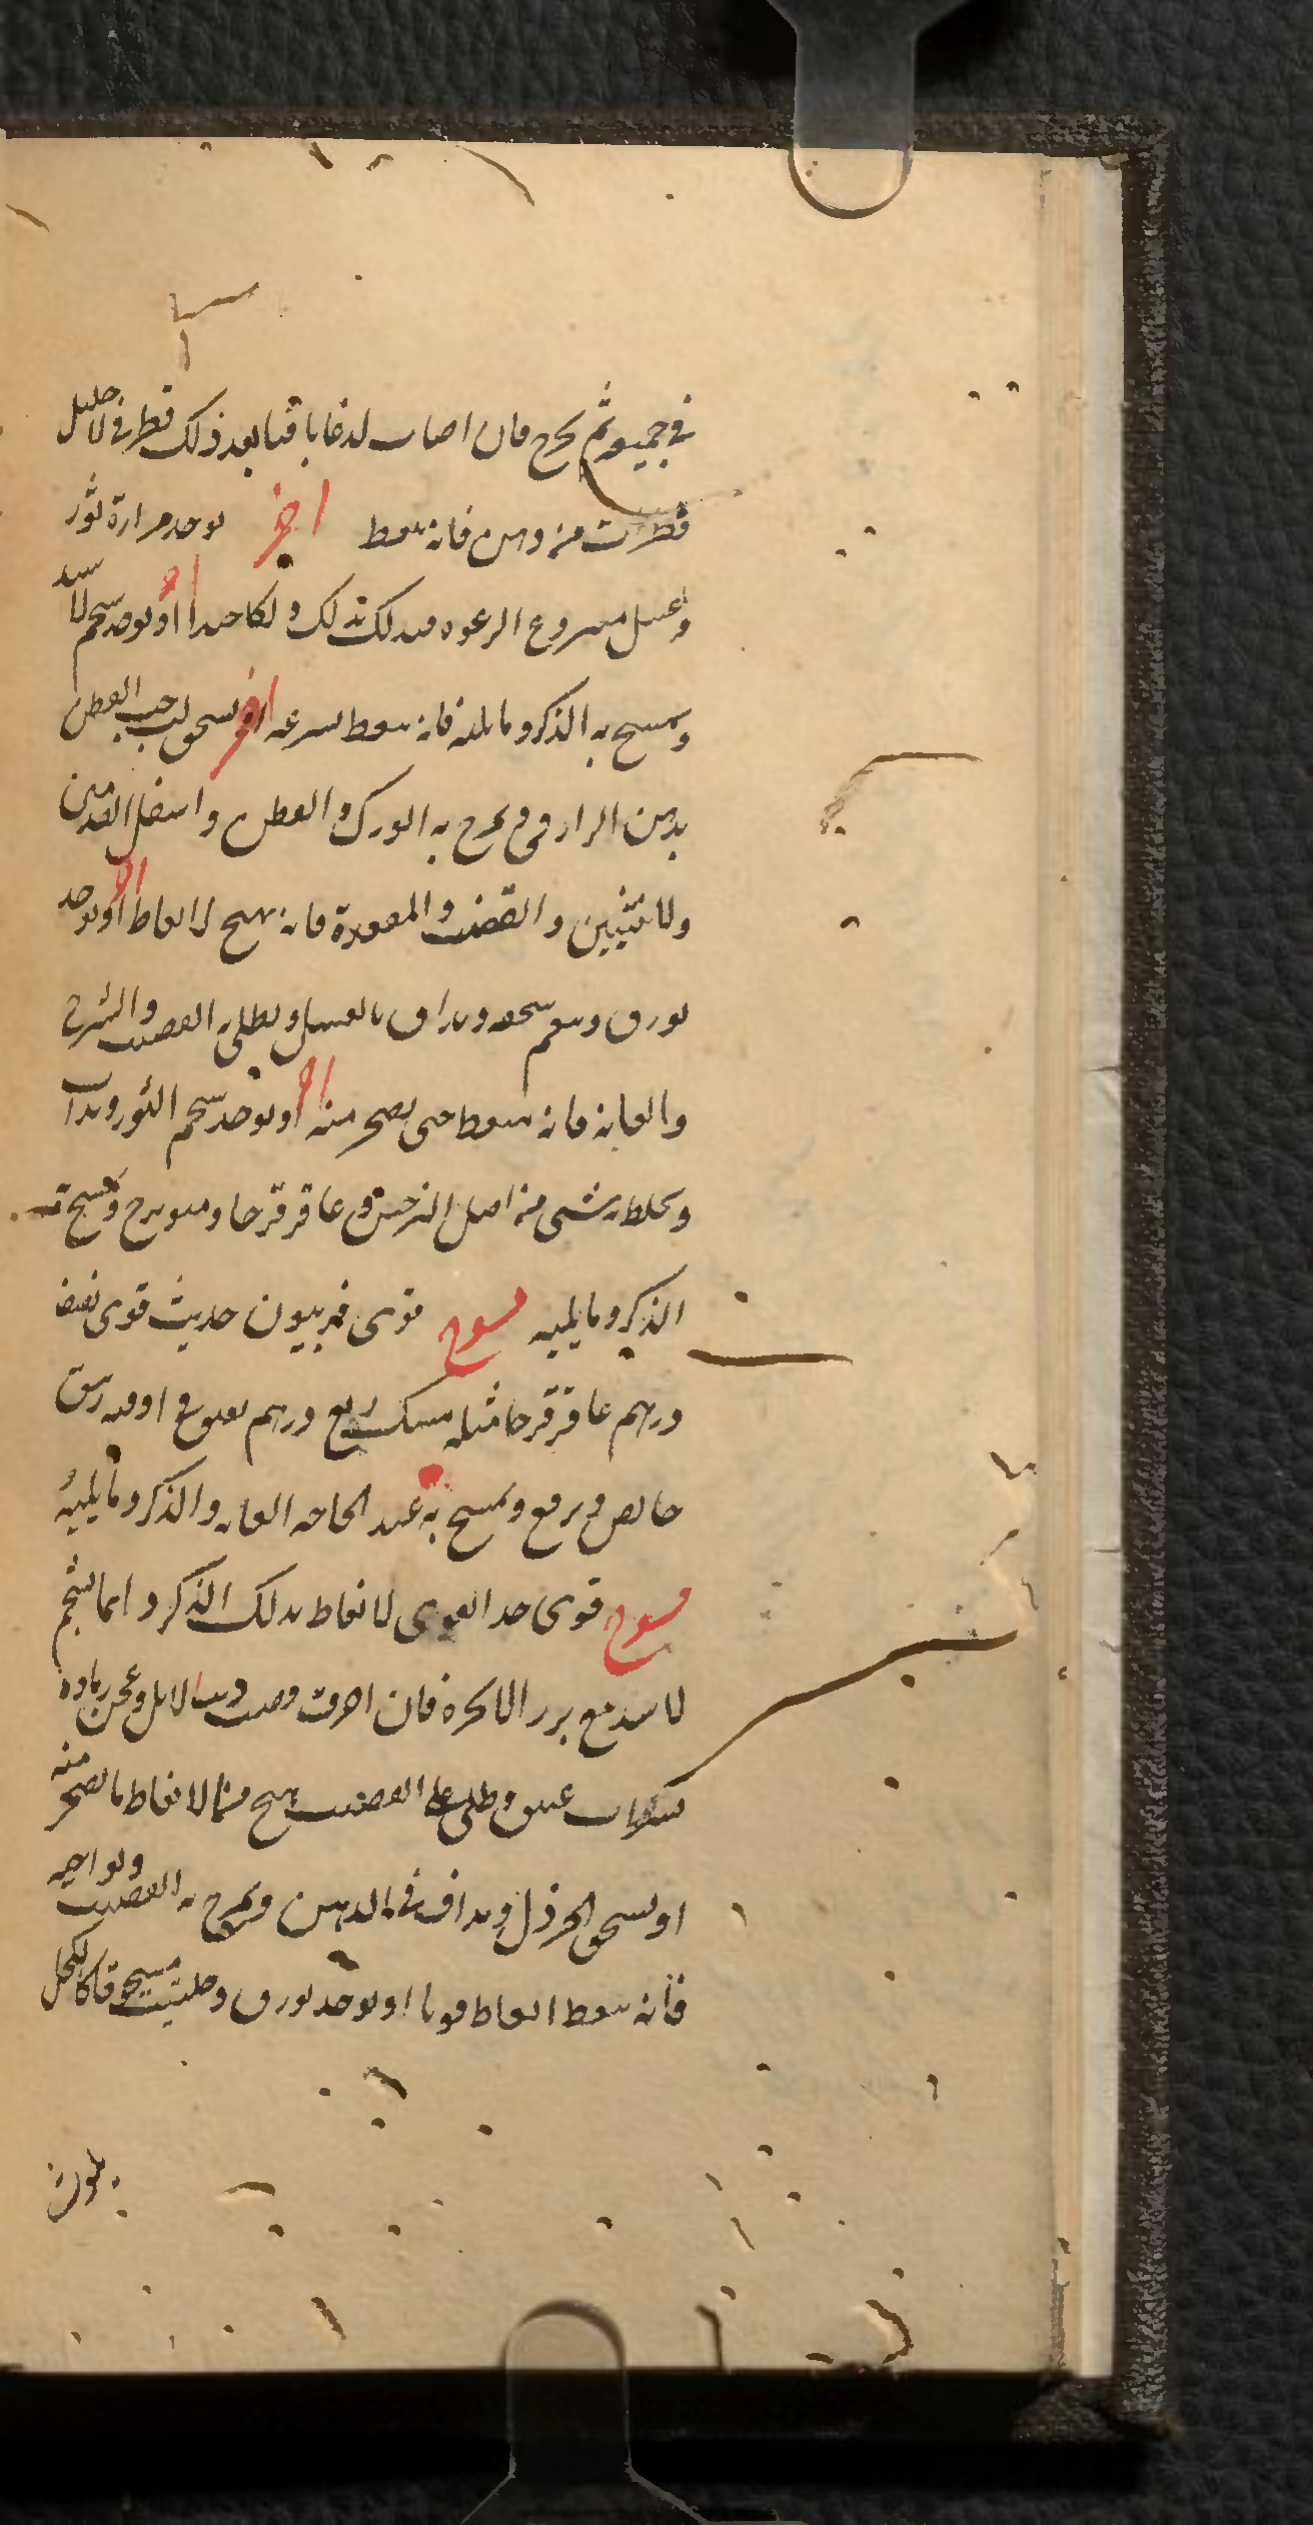 في جميعه ثم يخرج فان اصاب لدغا باقيا بعد ذلك قطر في الاحليل
قطرات من دهن فانه ينعظ اخر يوخذ مرارة ثور
وعسل منزوع الرغوه فيدلك بذلك دلكا جيدا او يوخذ شحم الاسد
ويمسح به الذكر وما يليه فانه ينعظ بسرعه او يسحق لب حب القطن
بدهن الرازقي ويمرخ به الورك والقطن واسفل القدمين
والانثيين والقضيب والمقعدة فانه يهيج الانعاظ او يوخذ
بورق وينعم سحقه ويداف بالعسل ويطلى به القضيب والشرج
والعانه فانه ينعظ حتى يضجر منه او يوخذ شحم الثور ويذاب
ويخلط بشى من اصل النرجس وعاقرقرحا وميويزج ويمسح به
الذكر وما يليه مسوح قوى فربيون حديث قوى نصف
درهم عاقرقرحا مثله مسك ربع درهم في اوقيه زنبق
خالص ويرفع ويمسح به عند الحاجه العانه والذكر وما يليه
مسوح قوى جدا لقوى الانعاظ يدلك الذكر دايما بشحم
الاسد مع بزر الانجرة فان احرقت الابل وعجن رماده
بشراب عتيق وطلى على القضيب هيج من الانعاظ ما يضجر منه
او يسحق الخردل ويداف في الدهن ويمرخ به القضيب ونواحيه
فانه ينعظ انعاظا قويا او يوخذ بورق وحلتيت مسحوقا كالكحل